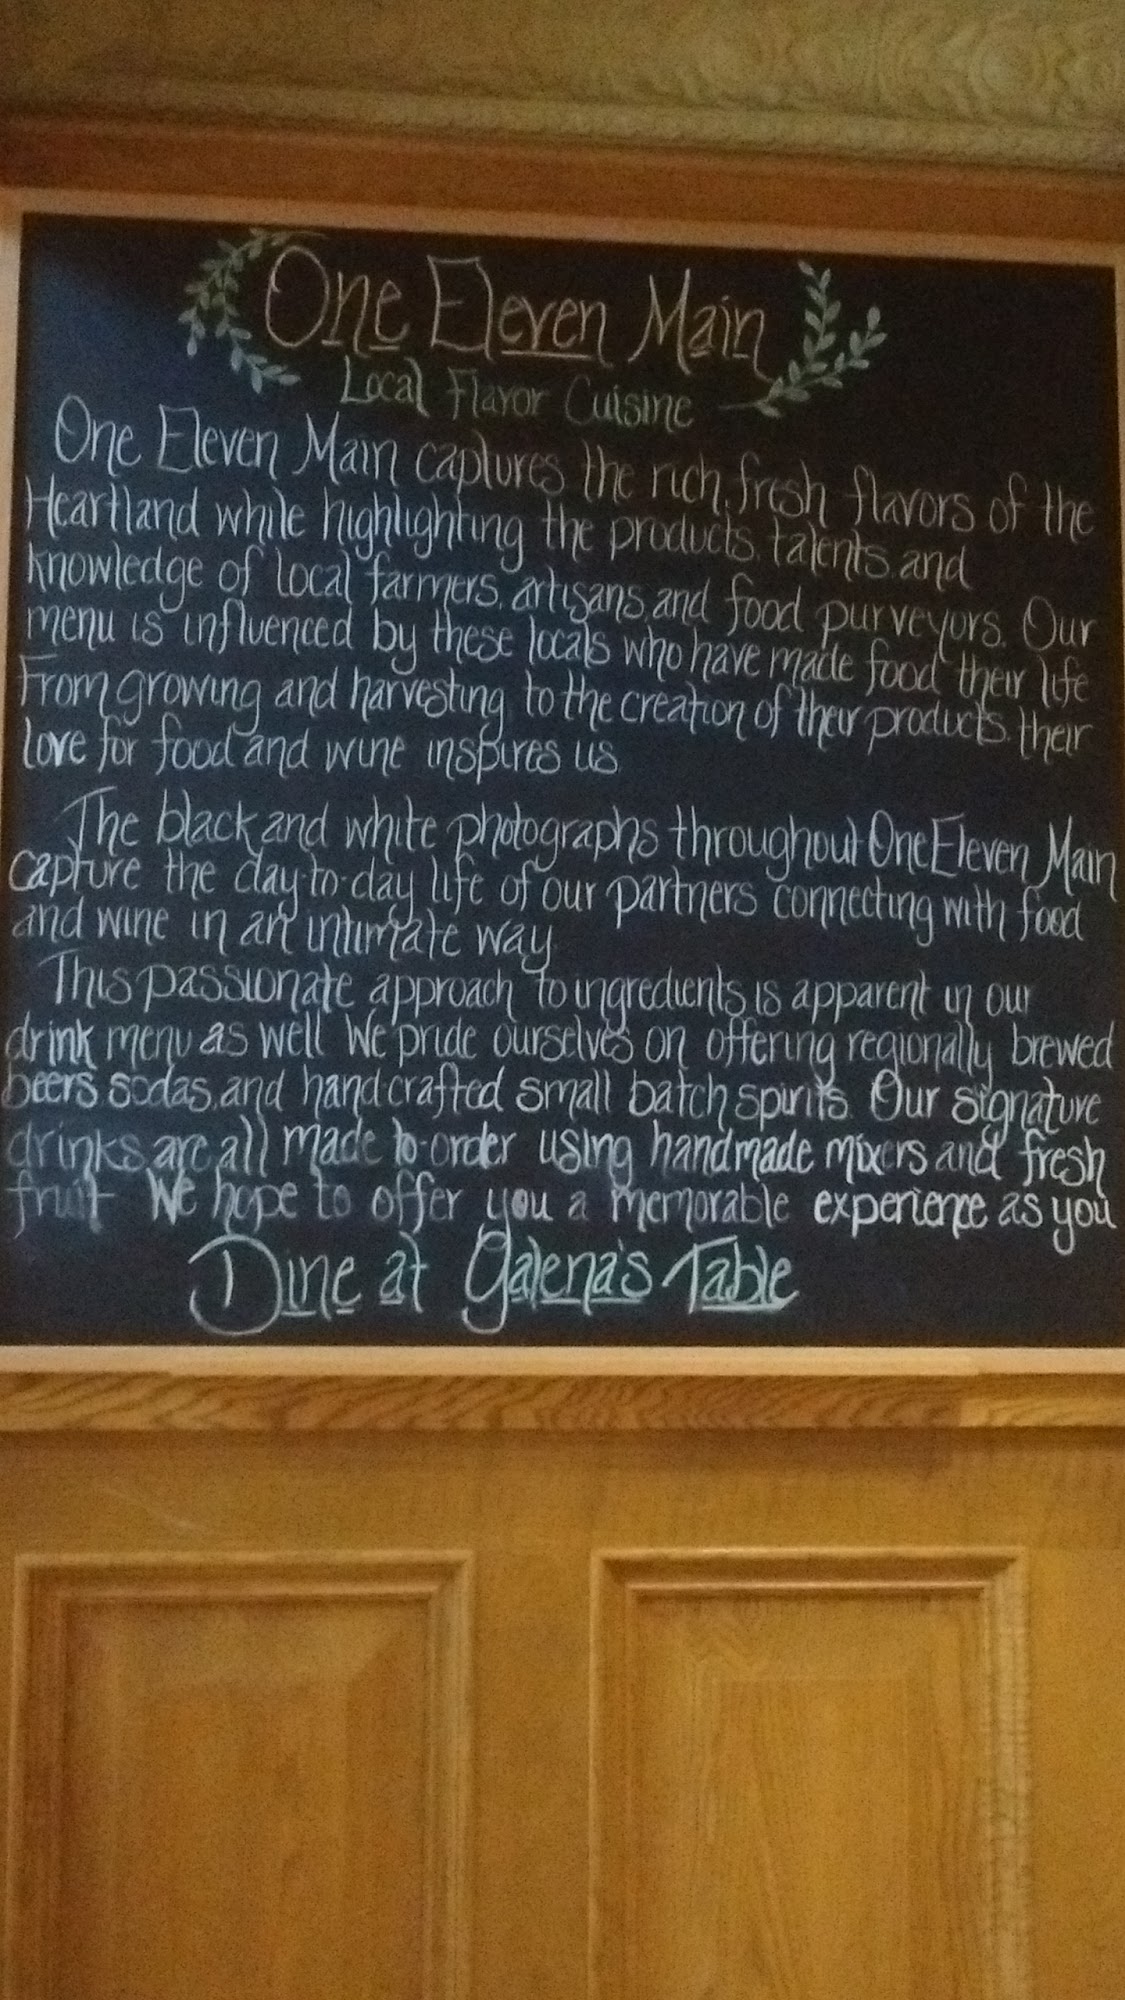 One Eleven Main
Local Flavor Cuisine
One Eleven Main captures the rich, fresh flavors of the
Heartland while highlighting the products, talents, and
knowledge of local farmers, artisans, and food purveyors. Our
menu is influenced by these locals who have made food their life
From growing and harvesting to the creation of their products, their
love for food and wine inspires us.
The black and white photographs throughout One Eleven Main
capture the day-to-day life of our partners connecting with food
and wine in an intimate way.
This passionate approach to ingredients is apparent in our
drink menu as well. We pride ourselves on offering regionally brewed
beers, sodas, and handcrafted small batch spirits. Our signature
drinks are all made to-order using handmade mixers and fresh
fruit. We hope to offer you a memorable experience as you
Dine at Galena's Table